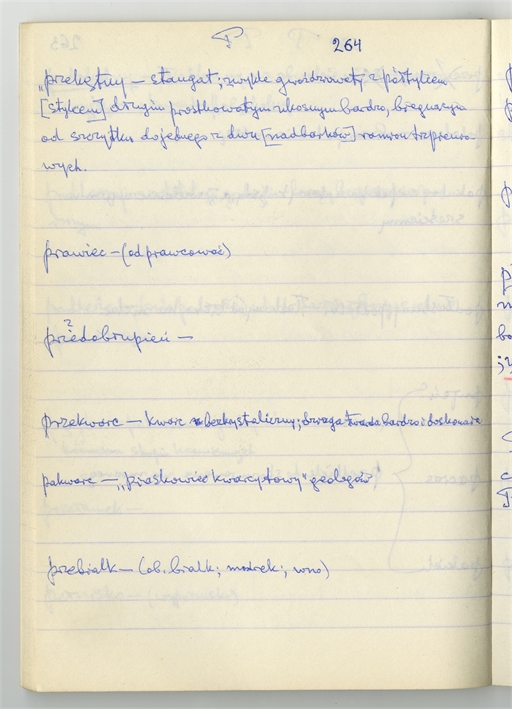 P 264
"przekątny — stangat; zwykle gwoździowaty z półtylcem
[stylcem] drugim prostkowatym ukosnym bardzo, biegnącym
od szczytku do jednego z dwu [nadbarków] ramion trzpienio-
wych.
prawiec — (od prawcować)
przedobrupień —
?
przekwarc — kwarc bezkrystaliczny; twarda bardzo i doskonale
pakwarc — „piaskowiec kwarcytowy" geologów
przebialk — (ob. bialk; modrek;